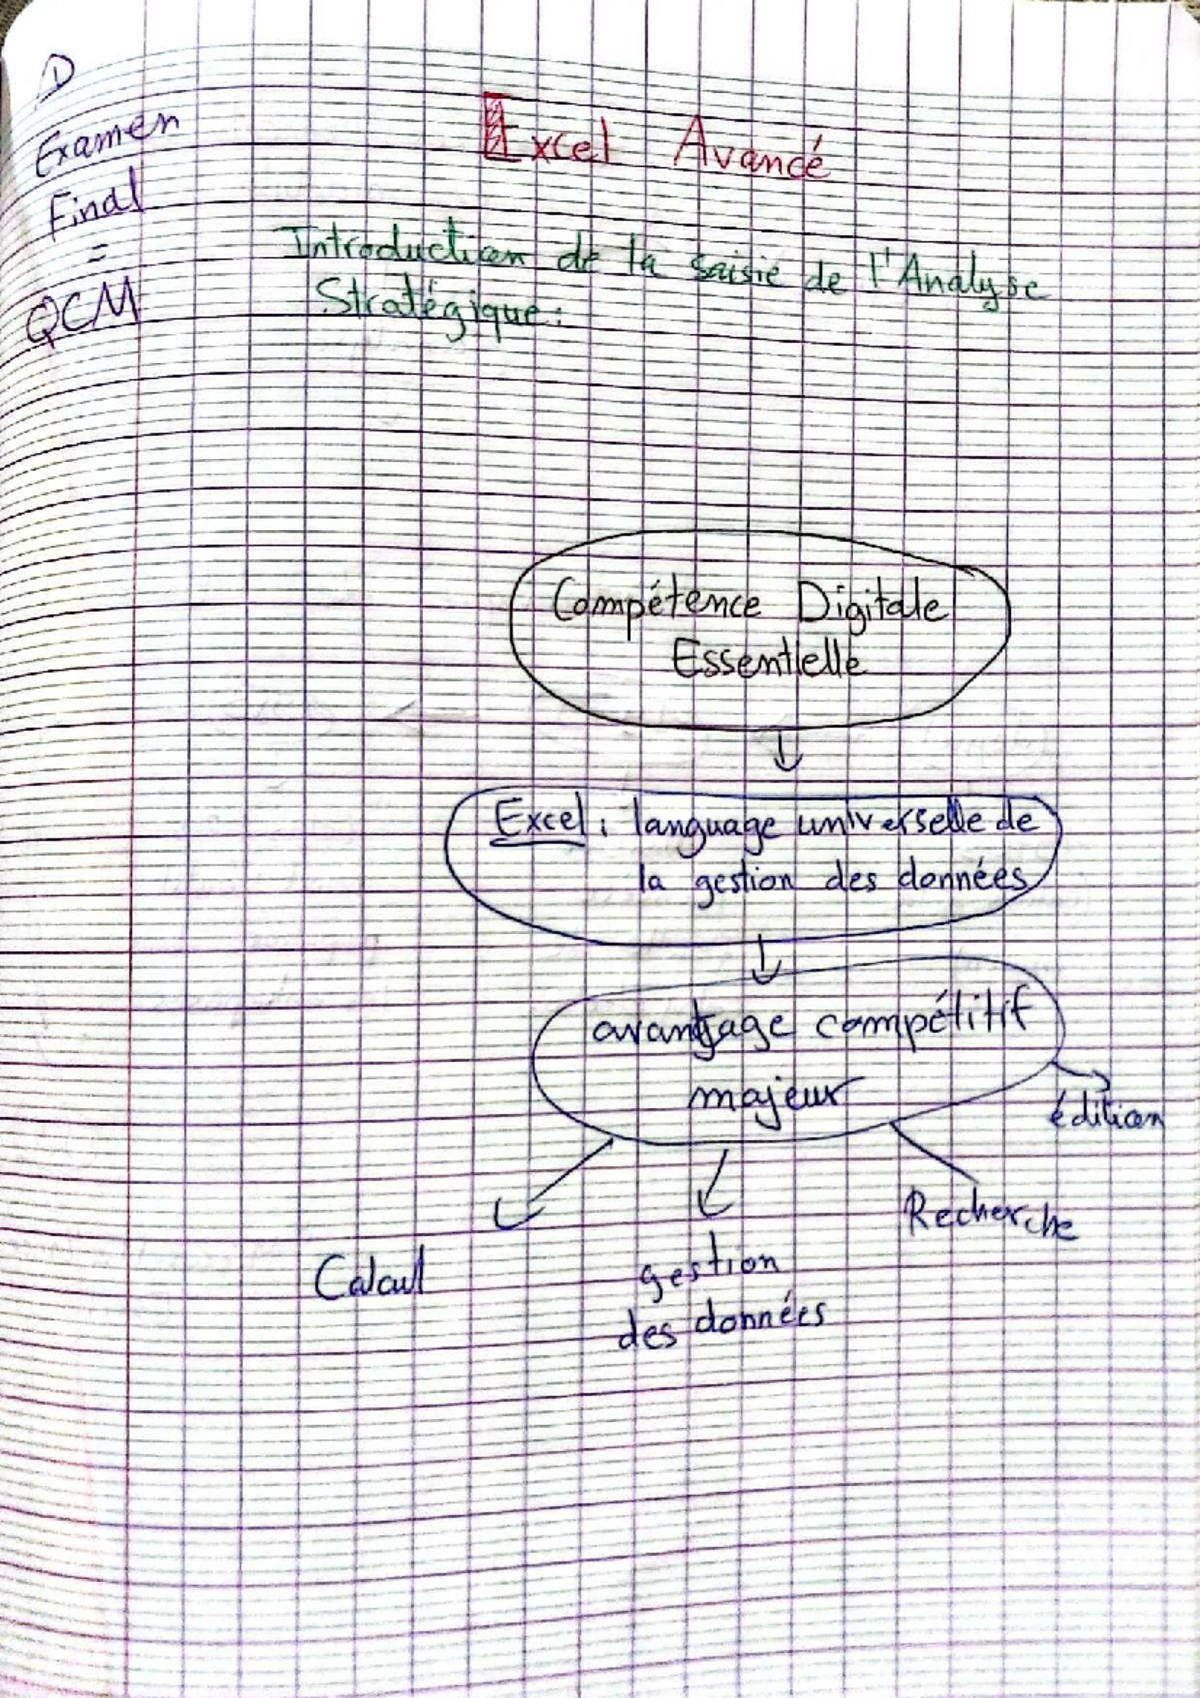 Examen
Final
=
QCM
Excel Avancé
Introduction de la saisie de l'Analyse
Stratégique:
Compétence Digitale
Essentielle
Excel : language universelle de
la gestion des données
avantage compétitif
majeur
édition
Recherche
Calcul
gestion
des données